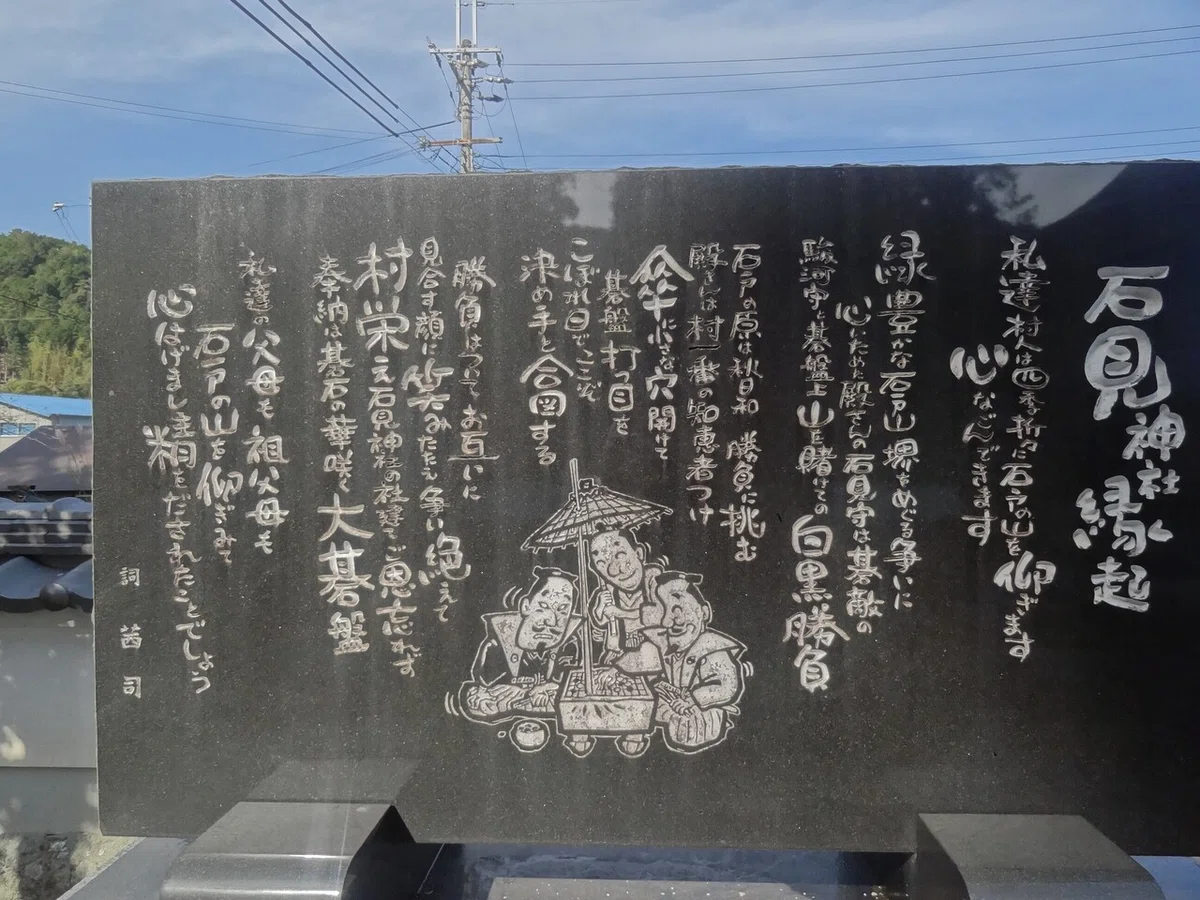 石見神社縁起
私達村人は四季折々に石戸の山を仰ぎます
心なごんできます
緑豊かな石戸山 境をめぐる争いに
心いためた殿さんの石見守は碁敵の
駿河守と碁盤上 山を賭けての白黒勝負
石戸の原は秋日和 勝負に挑む
殿さんは村一番の知恵者つけ
傘に小さな穴開けて
碁盤 打つ目を
こぼれ日でここぞ
決め手と合図する
勝負はついてお互いに
見合す顔に笑みたたえ争い絶えて
村栄え石見神社の社建てご恩忘れず
奉納は碁石の華咲く大碁盤
私達の父母も祖父母も
石戸の山を仰ぎみて
心はげまし生相をただされたことでしょう
詞 茜 司